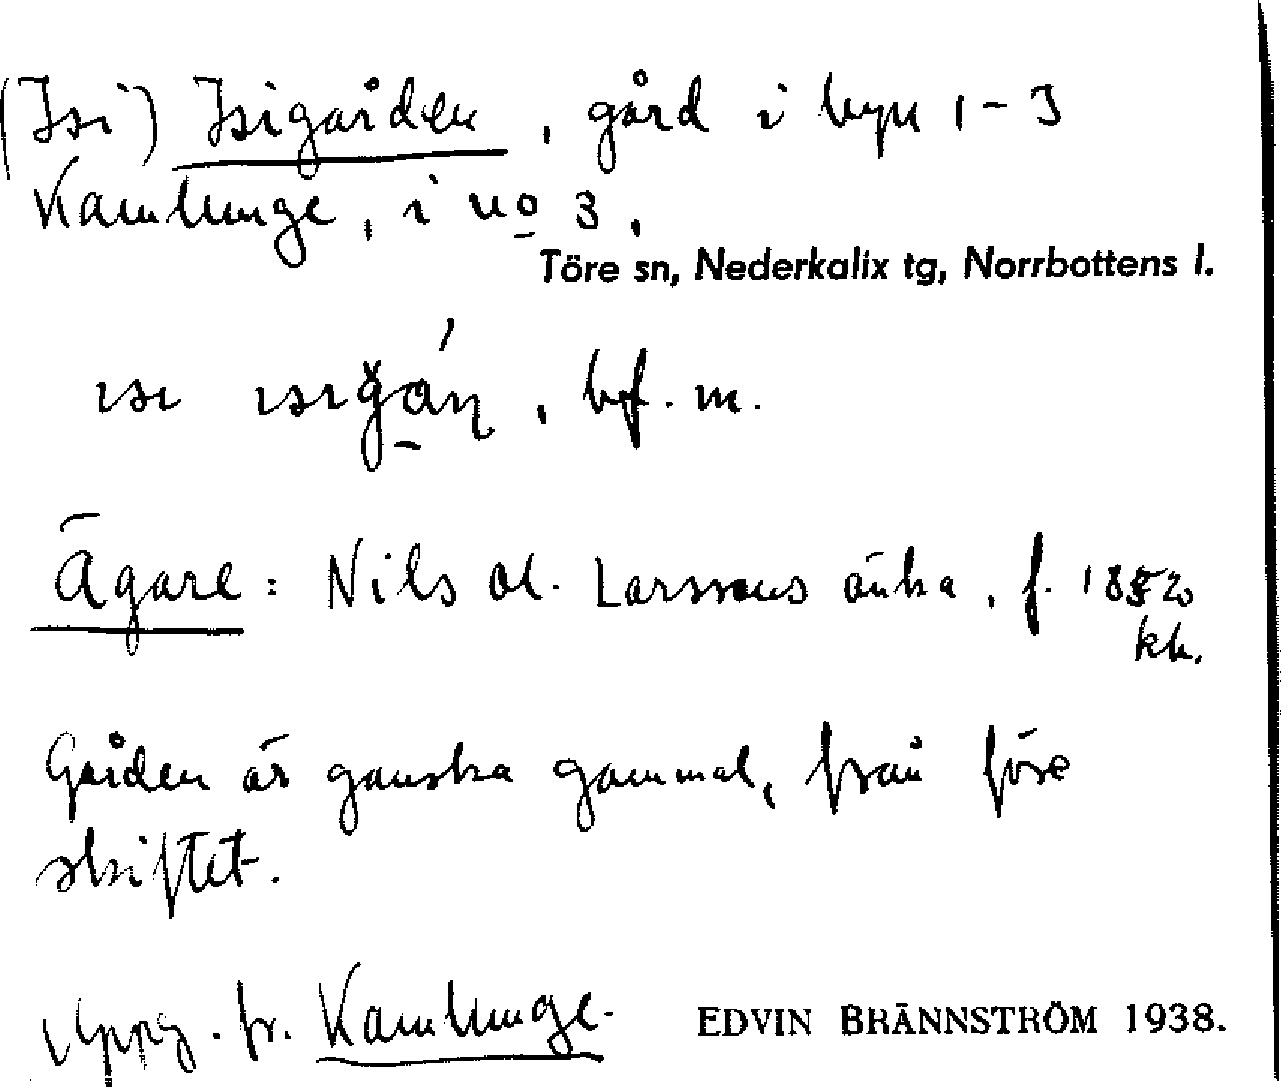 (Isi) Isigården, gård i byn 1-3
Kamlunge, i no 3.
Töre sn, Nederkalix tg, Norrbottens l.
ɪsɪ ɪsɪgán, bf. m.
Ägare: Nils Ol. Larssons änka, f. 1852,
kh.
Gården är ganska gammal, från före
skiftet.
Uppg. fr. Kamlunge.
EDVIN BRÄNNSTRÖM 1938.